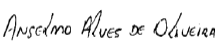 Anselmo Alves de Oliveira